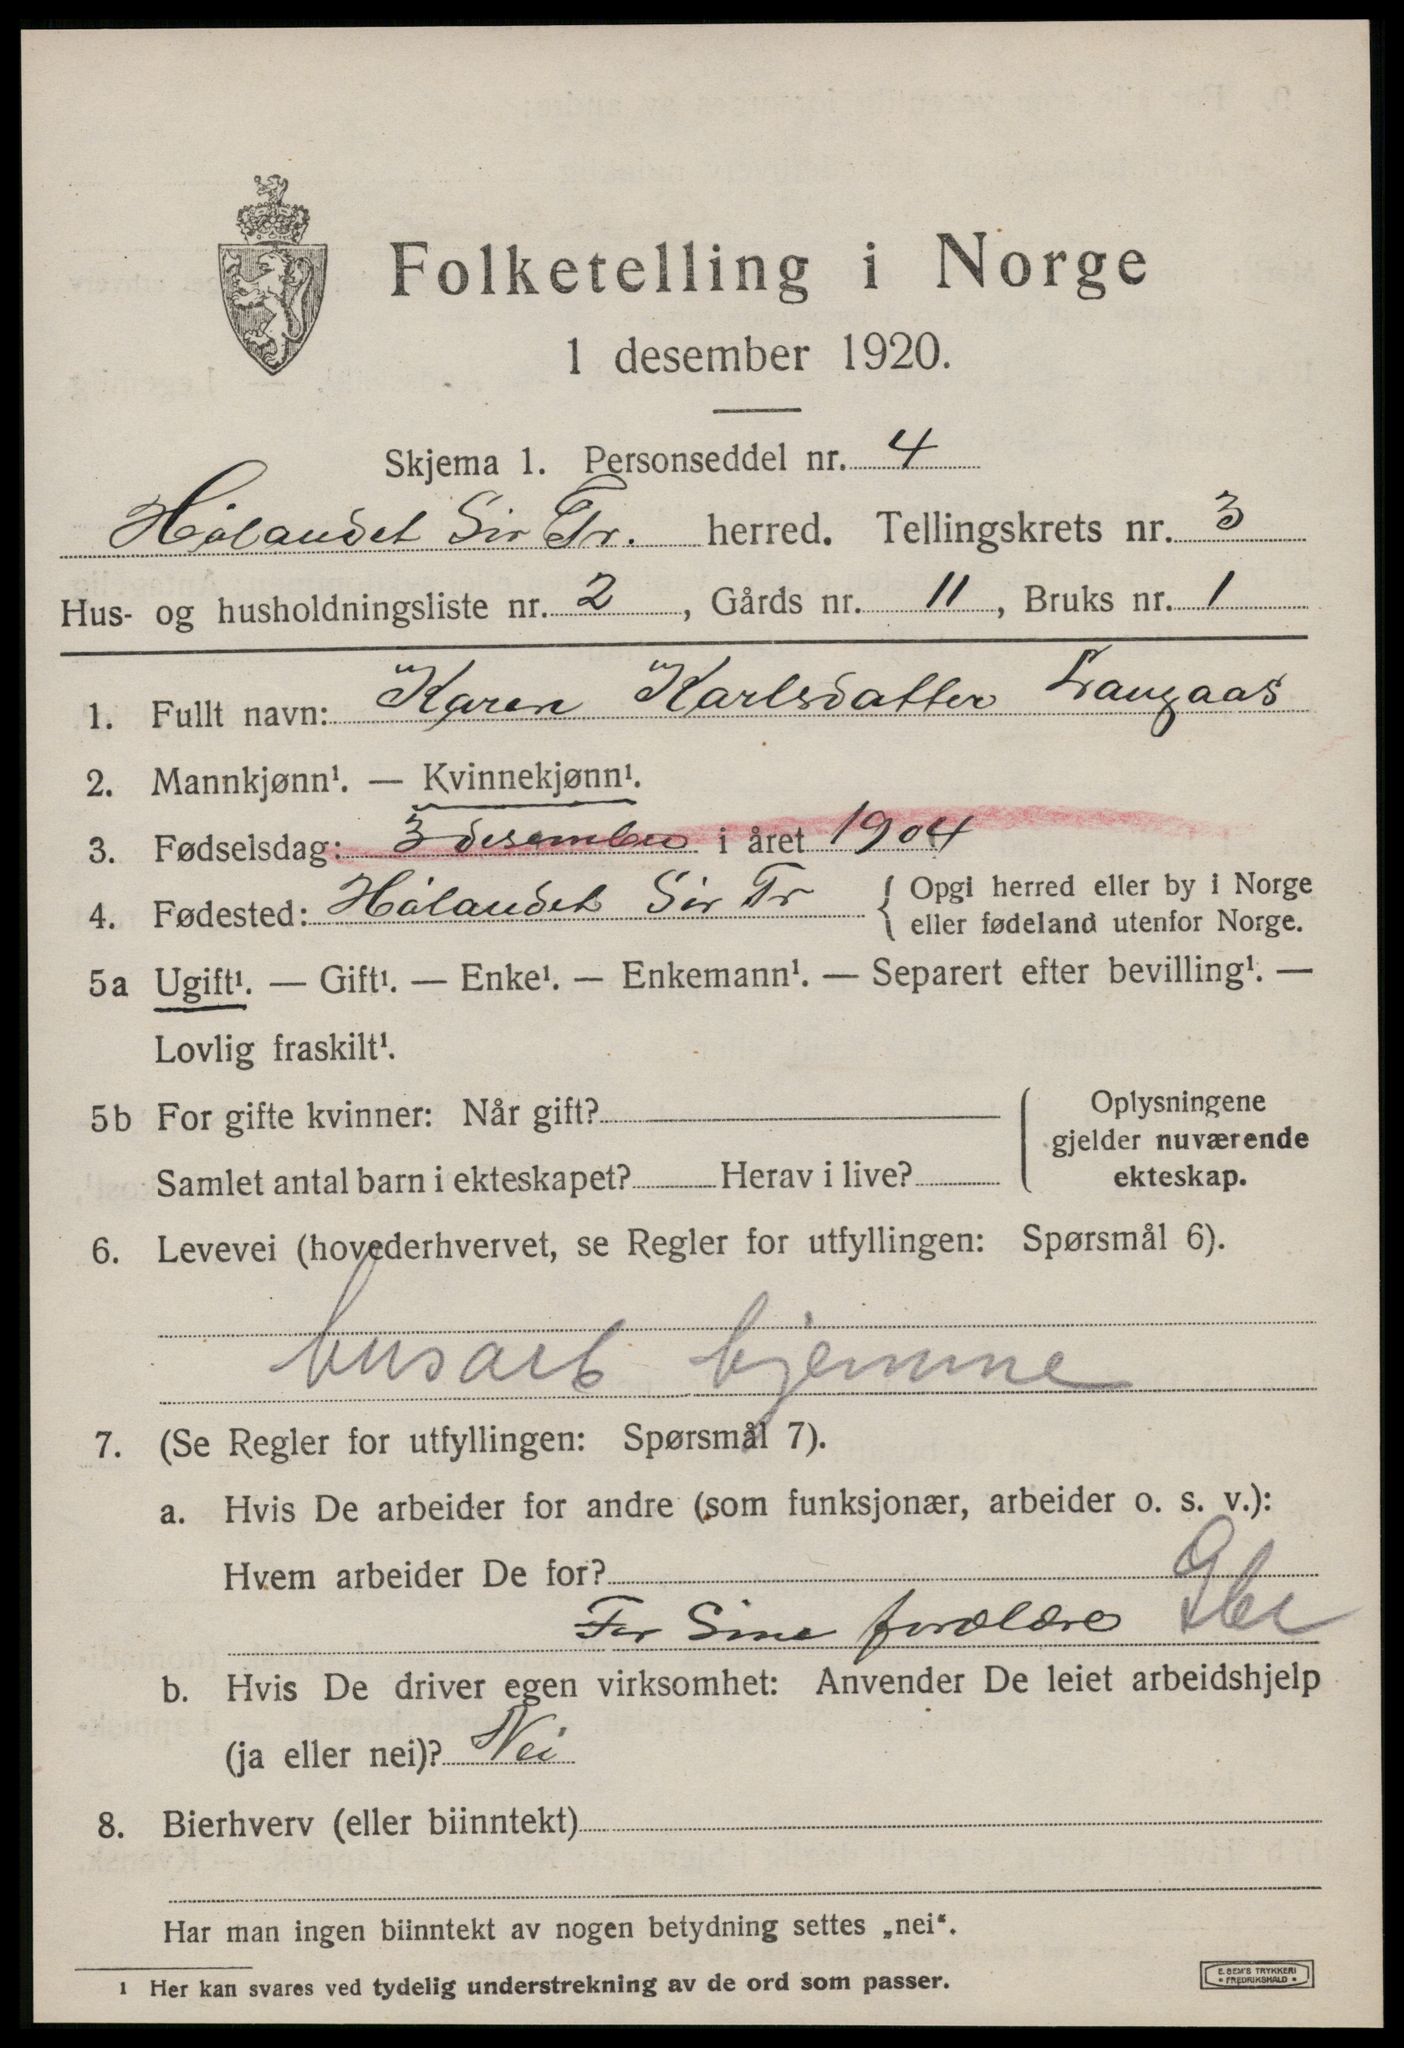 Folketelling i Norge
1 desember 1920.
Skjema 1. Personseddel nr. 4
Hølandet Sør Tr. herred. Tellingskrets nr. 3
Hus- og husholdningsliste nr. 2, Gårds nr. 11, Bruks nr. 1
1. Fullt navn: Karen Karlsdatter Langaas
2. Mannkjønn¹. — Kvinnekjønn¹.
3. Fødselsdag: 3 desember i året 1904
4. Fødested: Hølandet Sør Tr { Opgi herred eller by i Norge
eller fødeland utenfor Norge.
5a Ugift¹. — Gift¹. — Enke¹. — Enkemann¹. — Separert efter bevilling¹. —
Lovlig fraskilt¹.
5b For gifte kvinner: Når gift?
Samlet antal barn i ekteskapet? Herav i live?
Oplysningene
gjelder nuværende
ekteskap.
6. Levevei (hovederhvervet, se Regler for utfyllingen: Spørsmål 6).
husarb hjemme
7. (Se Regler for utfyllingen: Spørsmål 7).
a. Hvis De arbeider for andre (som funksjonær, arbeider o. s. v.):
Hvem arbeider De for?
For Sine forældre
b. Hvis De driver egen virksomhet: Anvender De leiet arbeidshjelp
(ja eller nei)? Nei
8. Bierhverv (eller biinntekt)
Har man ingen biinntekt av nogen betydning settes „nei“.
1 Her kan svares ved tydelig understrekning av de ord som passer.
E. SEM'S TRYKKERI
• FREDRIKSHALD •